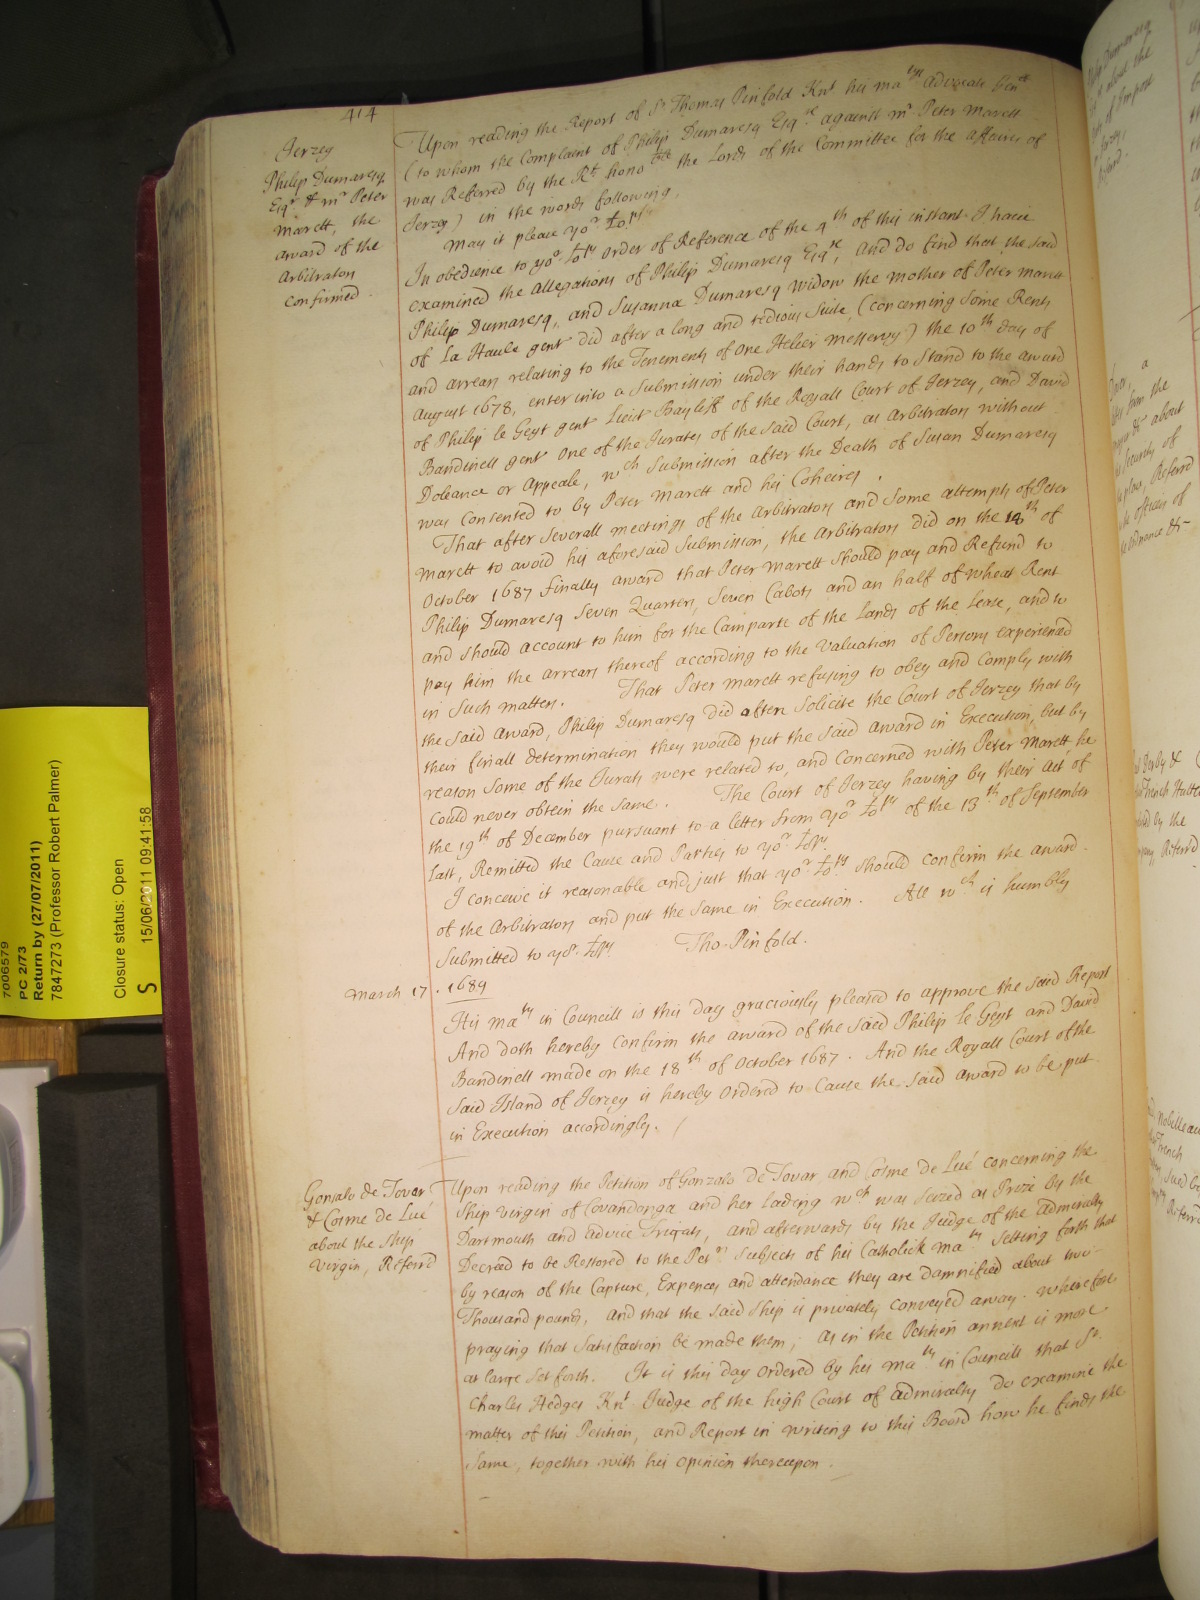 414
Jerzey
Philip Dumaresq
Esqr & mr Peter
Marett, the
award of the
Arbitrators
Confirmed.
Upon reading the Report of Sr Thomas Pinfold Knt his matys Advocate Genll
(to whom the Complaint of Philip Dumaresq Esqre against mr Peter Marett
was Referred by the Rt honoble the Lords of the Committee for the affaires of
Jerzey) in the words following.
May it please yor Lops
In obedience to yor Lops order of Reference of the 4th of this instant I have
examined the Allegations of Philip Dumaresq Esqre, and do find that the said
Philip Dumaresq, and Susanna Dumaresq widow the mother of Peter Marett
of La Haule gent did after a long and tedious Suite, (concerning some Rents
and arrears relating to the Tenements of one Helier Messervy) the 10th day of
August 1678, enter into a Submission under their hands to stand to the award
of Philip le Geyt gent Lieut Bayliff of the Royall Court of Jerzey, and David
Bandinell gent one of the Jurates of the said Court, as Arbitrators without
Doleance or Appeale, wch Submission after the Death of Susan Dumaresq
was Consented to by Peter Marett and his Coheires.
That after severall meetings of the Arbitrators and some attempts of Peter
Marett to avoid his aforesaid Submission, the Arbitrators did on the 18th of
October 1687 finally award that Peter Marett should pay and Refund to
Philip Dumaresq Seven Quarters, Seven Cabots and an half of wheat Rent
and should account to him for the Camparts of the Lands of the Lease, and to
pay him the arrears thereof according to the valuation of Persons experienced
in such matters. That Peter Marett refusing to obey and Comply with
the said Award, Philip Dumaresq did often Solicite the Court of Jerzey that by
their finall determination they would put the said award in Execution, but by
reason some of the Jurats were related to, and Concerned with Peter Marett he
could never obtein the same. The Court of Jerzey having by their Act of
the 19th of December pursuant to a letter from yor Lops of the 13th of September
last, Remitted the Cause and Parties to yor Lops
I conceive it reasonable and just that yor Lops should confirm the award
of the Arbitrators and put the same in Execution. All wch is humbly
Submitted to yor Lops Tho. Pinfold.
March 17. 1689
His maty in Councill is this day graciously pleased to approve the said Report
And doth hereby Confirm the award of the said Philip le Geyt and David
Bandinell made on the 18th of October 1687. And the Royall Court of the
said Island of Jerzey is hereby Ordered to Cause the said award to be put
in Execution accordingly.
Gonsalo de Tovar
& Cosme de Lué
about the ship
Virgin, Referrd
Upon reading the Petition of Gonzalo de Tovar and Cosme de Lué concerning the
Ship Virgin of Covandonga and her Lading wch was seized as Prize by the
Dartmouth and Advice Frigats, and afterwards by the Judge of the Admiralty
Decreed to be Restored to the Petrs Subjects of his Catholick maty Setting forth that
by reason of the Capture, Expences and attendance they are damnified about two
Thousand pounds, and that the said Ship is privately conveyed away. Wherefore
praying that Satisfaction be made them; as in the Petition annext is more
at large Set forth. It is this day Ordered by his maty in Councill that Sr
Charles Hedges Knt Judge of the high Court of Admiralty do examine the
matter of this Petition, and Report in writing to this Board how he finds the
Same, together with his opinion thereupon.
7006579
PC 2/73
Return by (27/07/2011)
7847273 (Professor Robert Palmer)
Closure status: Open
S 15/06/2011 09:41:58